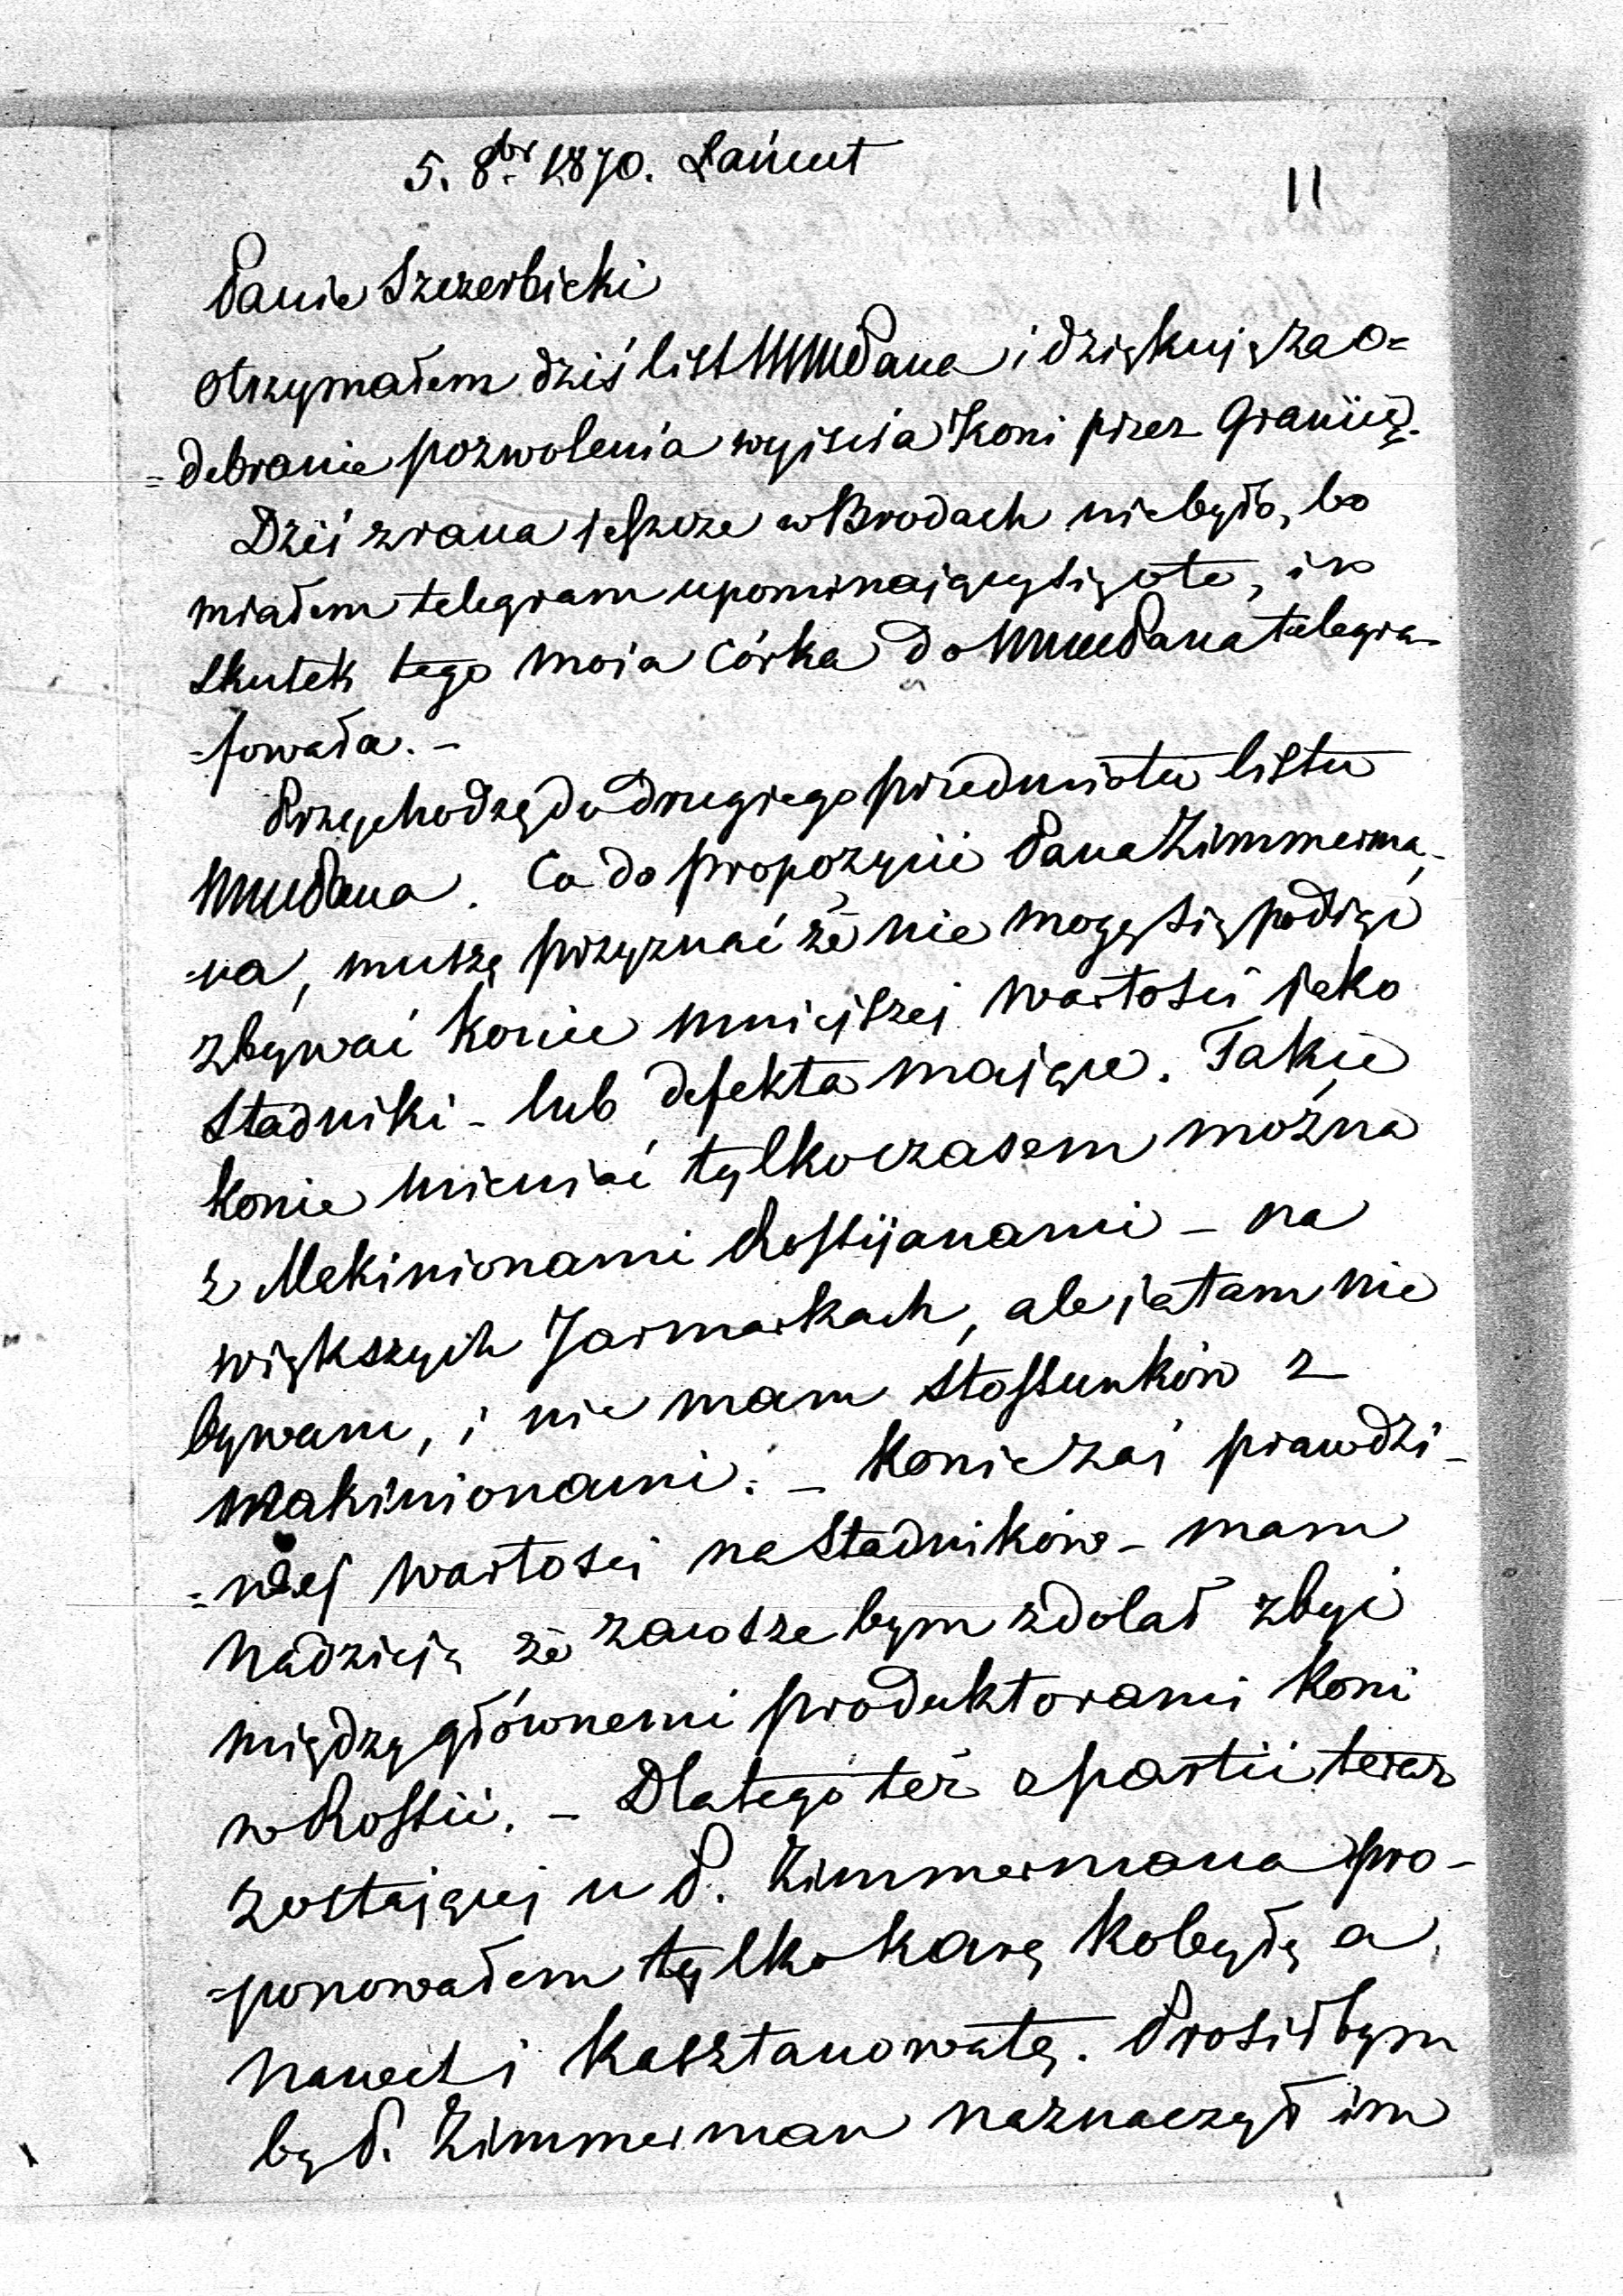 5. 8br 1870. Łańcut
11
Panie Szczerbicki
Otrzymałem dziś list WmPana i dziękuję za o=
=debranie pozwolenia wyiścia Koni przez Granicę.
Dziś zrana ieszcze w Brodach niebyło, bo
miałem telegram upominaiący się o te, i w
skutek tego moia Córka do WmPana telegra-
-fowała. -
Przychodzę do drugiego przedmiotu listu
WmPana. Co do propozycii Pana Zimmerma-
-na, muszę przyznać że nie mogę się podiąć
zbywać konie mnieiszej wartości jako
Stadniki - lub defekta maiące. Takie
Konie mieniać tylko czasem można
z Mekinionami Rossijanami - na
większych Jarmarkach, ale ia tam nie
bywam, i nie mam stossunków z
Makinionami. - Konie zaś prawdzi-
=wej wartości na Stadników - mam
Nadzieię że zawsze bym zdołał zbyć
między głównemi produktorami Koni
w Rossii. - Dlatego też z partii teraz
zostaiącej u P. Zimmermana pro-
-ponowałem tylko karą Kobyłę a
nawet i kasztanowatą. Prosiłbym
by P. Zimmerman naznaczył im